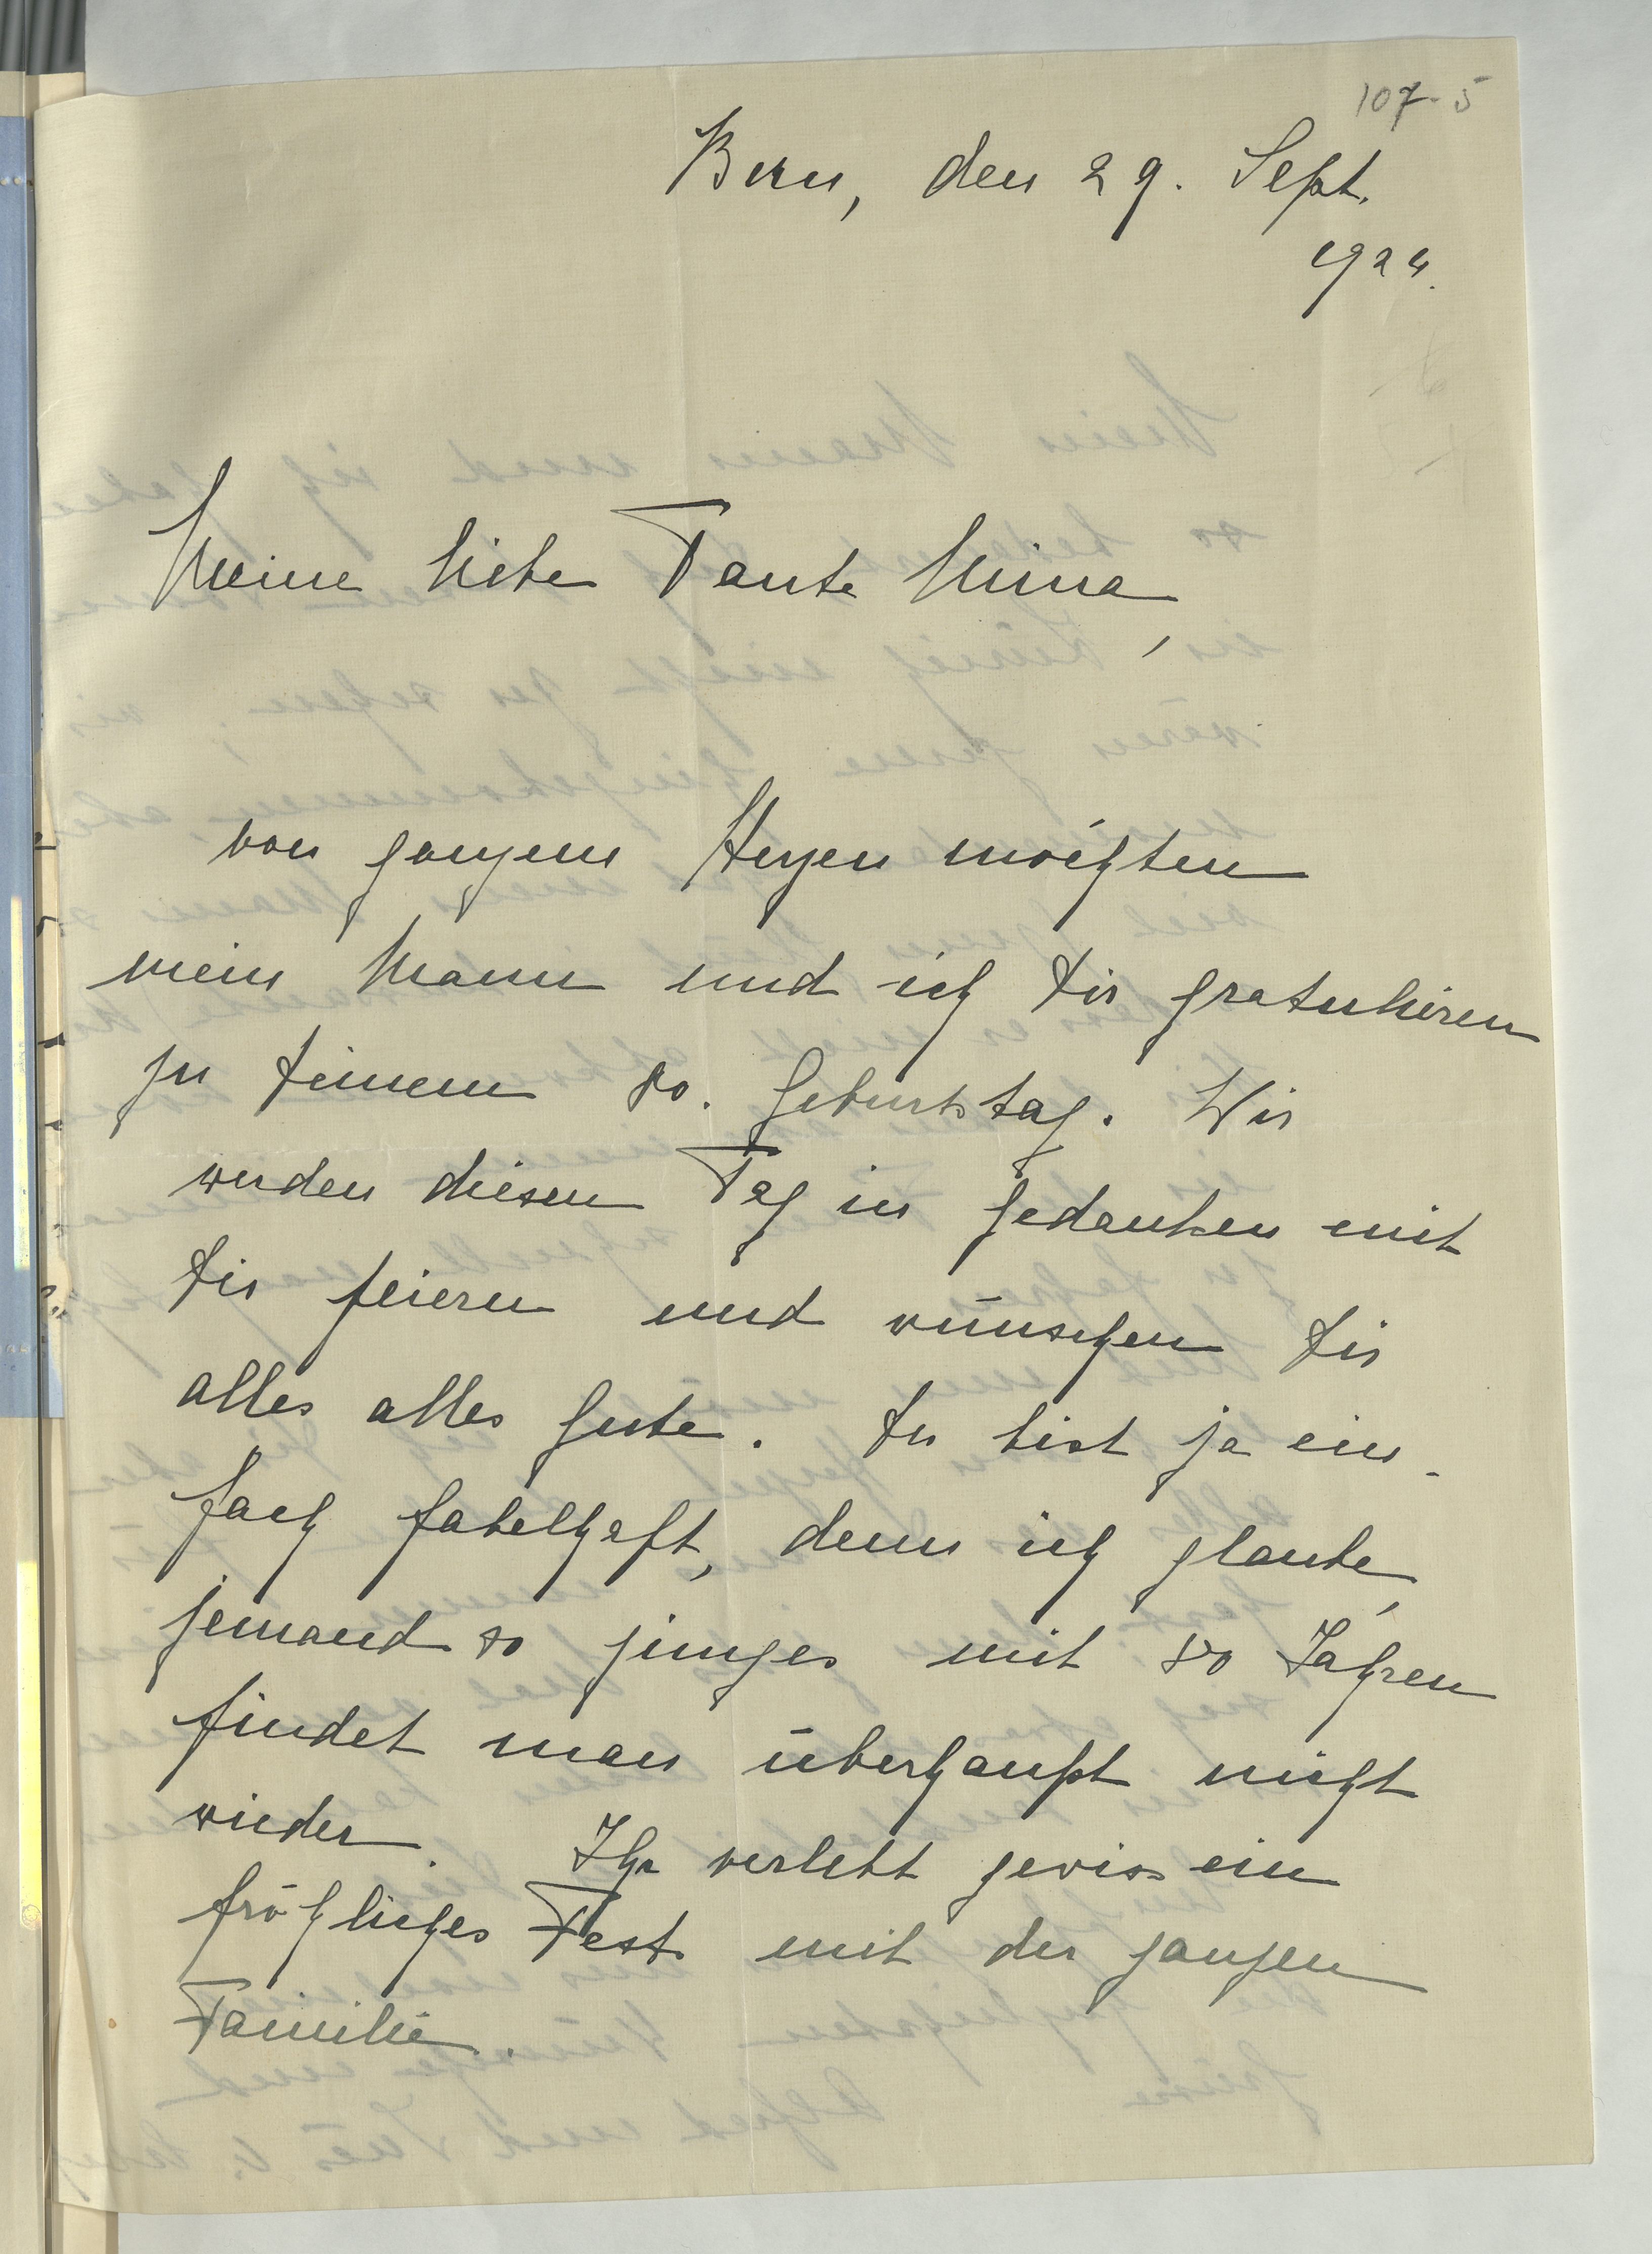 107-5
Bern, den 29. Sept.
1924.
Meine liebe Tante Mina,
von ganzem Herzen möchten
mein Mann und ich Dir gratulieren
zu Deinem 80. Geburtstag. Wir
werden diesen Tag in Gedanken mit
Dir feiern und wünschen Dir
alles alles Gute. Du bist ja ein-
fach fabelhaft, denn ich glaube,
jemand so junges mit 80 Jahren
findet man überhaupt nicht
wieder. Ihr verlebt gewiss ein
fröhliches Fest mit der ganzen
Familie.